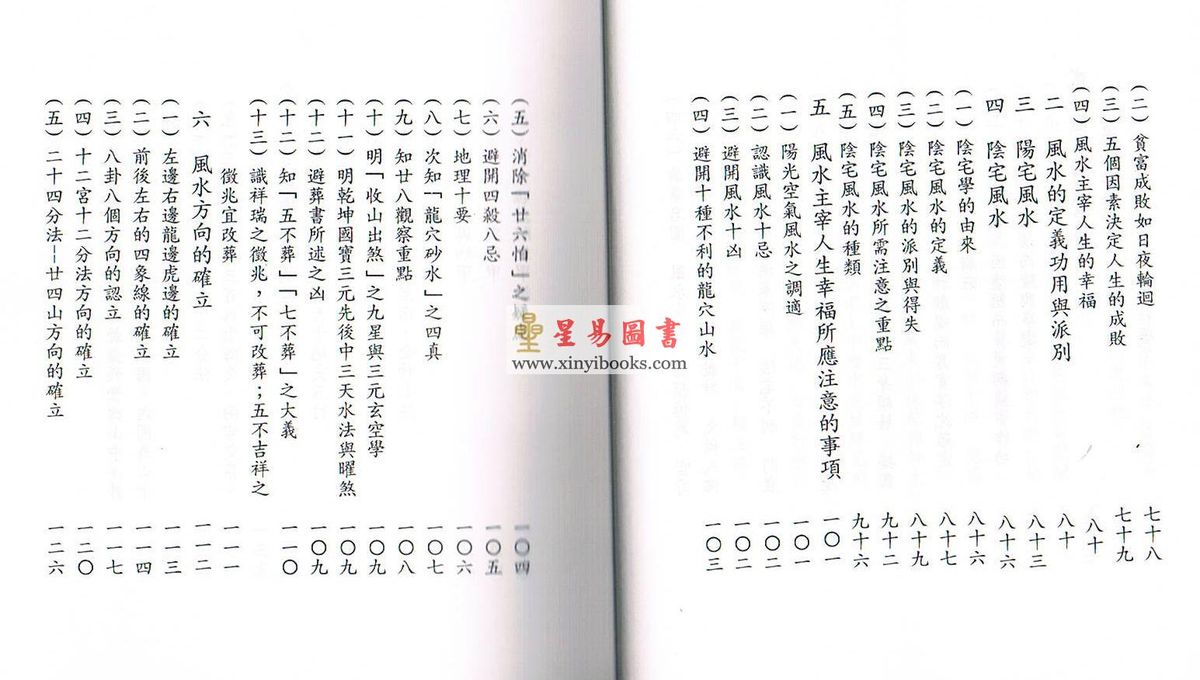 (二)貧富成敗如日夜輪迴 七十八
(三)五個因素決定人生的成敗 七十九
(四)風水主宰人生的幸福 八十
二 風水的定義功用與派別 八十
三 陽宅風水 八十三
四 陰宅風水 八十六
(一)陰宅學的由來 八十六
(二)陰宅風水的定義 八十七
(三)陰宅風水的派別與得失 八十九
(四)陰宅風水所需注意之重點 九十二
(五)陰宅風水的種類 九十六
五 風水主宰人生幸福所應注意的事項 一〇一
(一)陽光空氣風水之調適 一〇一
(二)認識風水十忌 一〇二
(三)避開風水十凶 一〇二
(四)避開十種不利的龍穴山水 一〇三
(五)消除「廿六怕」之 一〇四
(六)避開四殺八忌 一〇五
(七)地理十要 一〇六
(八)次知「龍穴砂水」之四真 一〇七
(九)知廿八觀察重點 一〇八
(十)明「收山出煞」之九星與三元玄空學 一〇九
(十一)明乾坤國寶三元先後中三天水法與曜煞 一〇九
(十二)避葬書所述之凶 一〇九
(十二)知「五不葬」「七不葬」之大義 一一〇
(十三)識祥瑞之徵兆，不可改葬；五不吉祥之
徵兆宜改葬 一一一
六 風水方向的確立 一一二
(一)左邊右邊龍邊虎邊的確立 一一三
(二)前後左右的四象線的確立 一一四
(三)八卦八個方向的認立 一一七
(四)十二宮十二分法方向的確立 一二〇
(五)二十四分法－廿四山方向的確立 一二六
星易圖書
www.xinyibooks.com